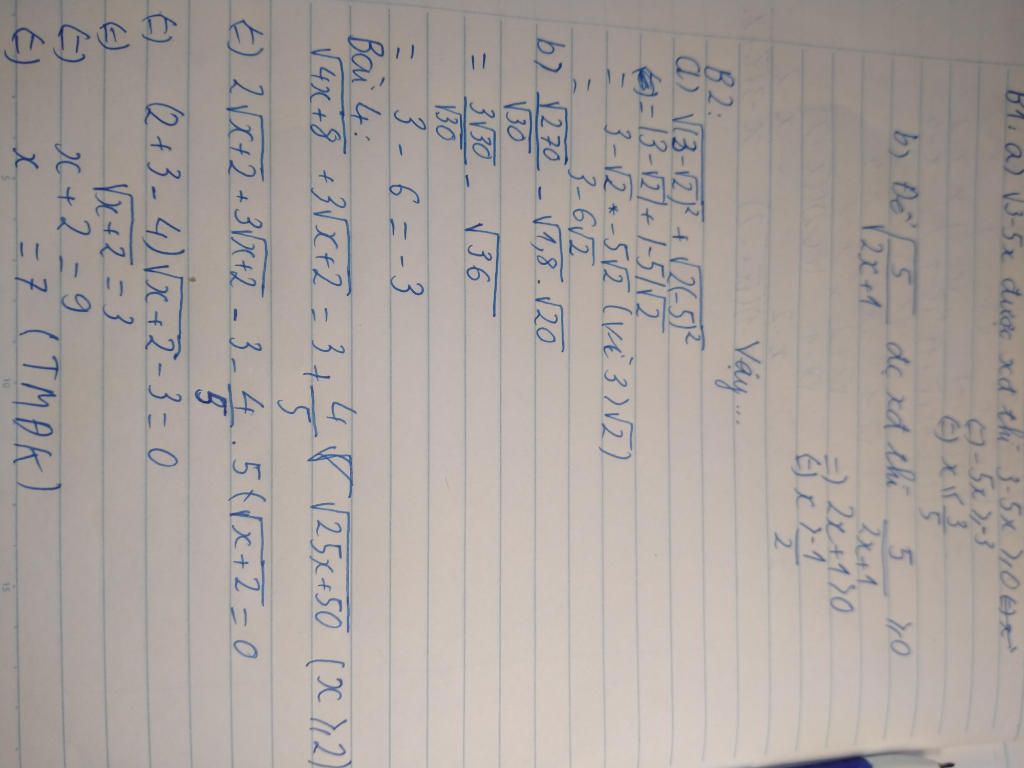 B1. a) √3-5x được xđ thì 3-5x ≥ 0
(=) -5x ≥ -3
(=) x ≤ 3/5
b) Để √5/√2x+1 đc xđ thì 5/2x+1 ≥ 0
=) 2x+1 ≥ 0
(=) x ≥ -1/2
Vậy...
B2:
a) √(3-√2)² + √2(-5)²
= |3-√2| + |-5|√2
= 3-√2 + -5√2 (vì 3 > √2)
= 3-6√2
b) √270/√30 - √1,8 . √20
= 3√30/√30 - √36
= 3 - 6 = -3
Bài 4:
√4x+8 + 3√x+2 = 3 + 4/5 √25x+50 (x ≥ 2)
(=) 2√x+2 + 3√x+2 - 3 - 4/5 . 5(√x+2 = 0
(=) (2+3-4)√x+2 - 3 = 0
(=) √x+2 = 3
(=) x+2 = 9
(=) x = 7 (TMĐK)